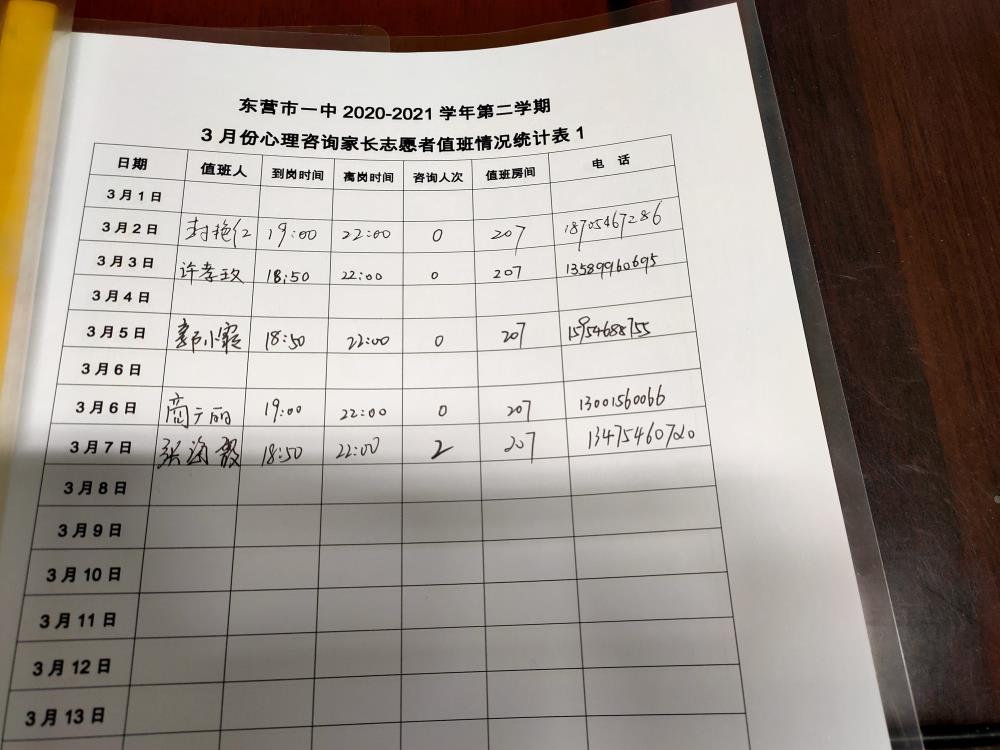 东营市一中 2020-2021 学年第二学期
3 月份心理咨询家长志愿者值班情况统计表 1
日期 值班人 到岗时间 离岗时间 咨询人次 值班房间 电 话
3 月 1 日
3 月 2 日 封艳红 19:00 22:00 0 207 18705467286
3 月 3 日 许孝玫 18:50 22:00 0 207 13589960695
3 月 4 日
3 月 5 日 郭小霞 18:50 22:00 0 207 15954688755
3 月 6 日
3 月 6 日 商广丽 19:00 22:00 0 207 13001560066
3 月 7 日 张海 18:50 22:00 2 207
3 月 8 日
3 月 9 日
3 月 10 日
3 月 11 日
3 月 12 日
3 月 13 日